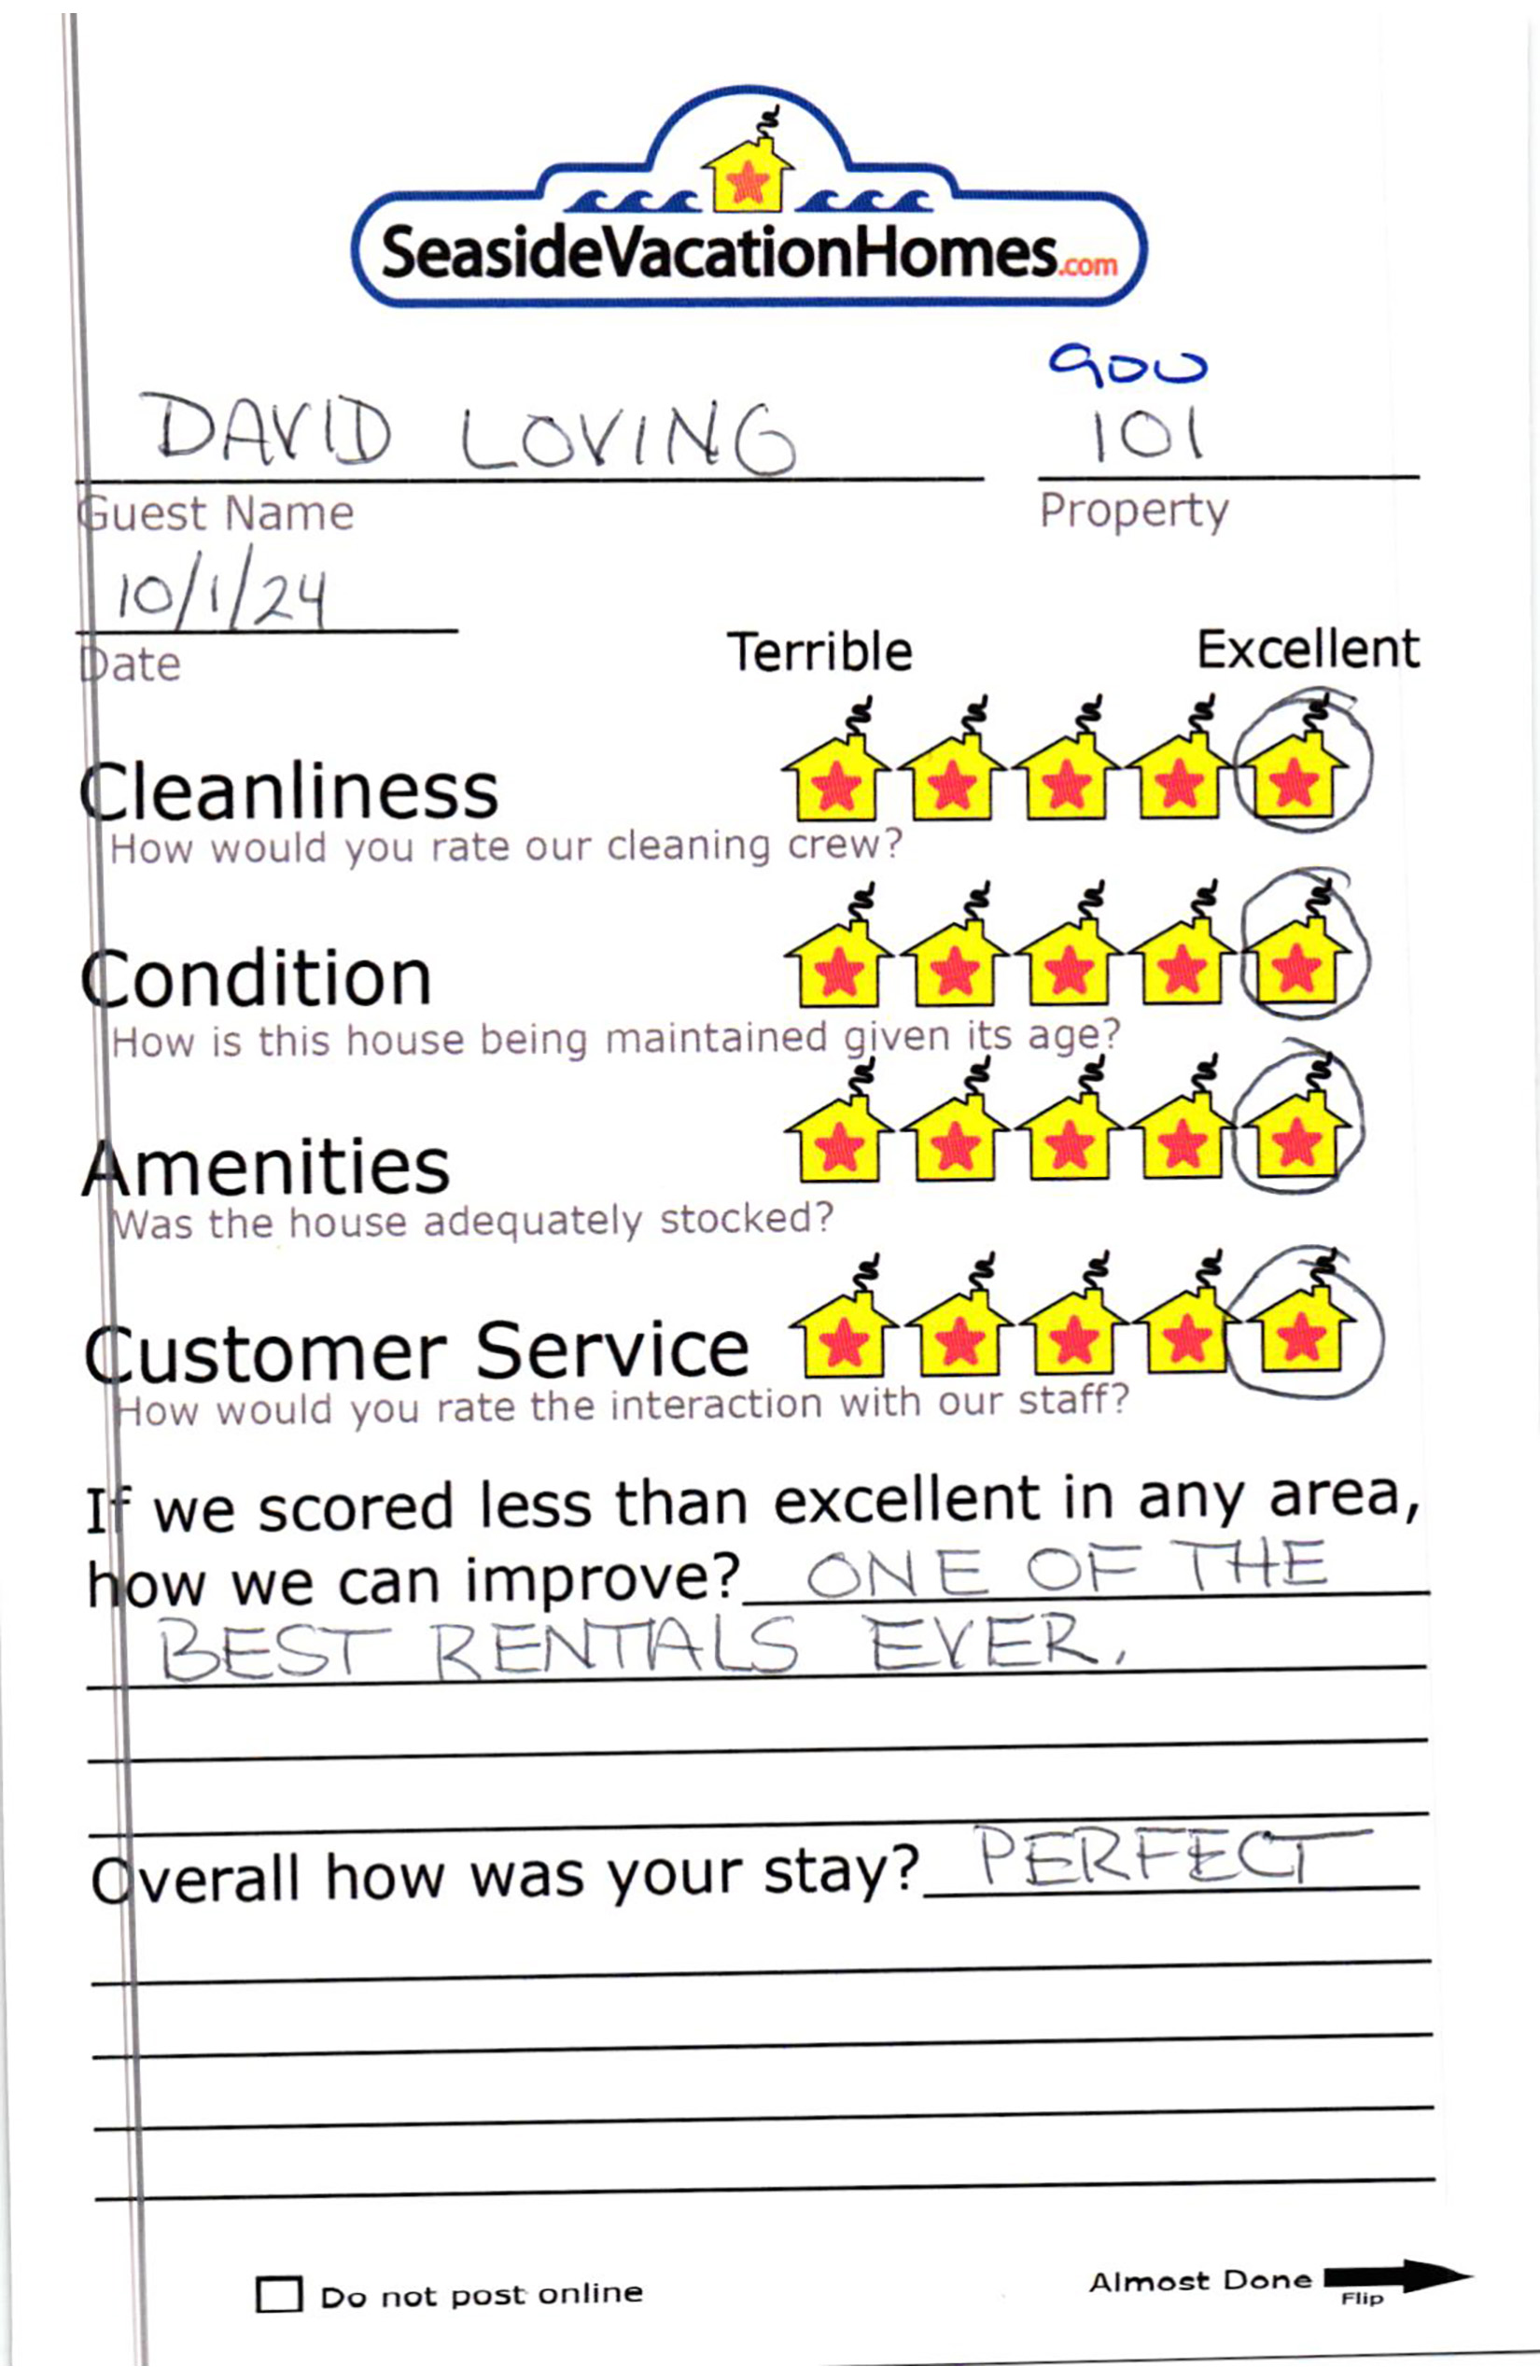 SeasideVacationHomes.com
900
DAVID LOVING 101
Guest Name Property
10/1/24
Date
Terrible Excellent
Cleanliness
How would you rate our cleaning crew?
Condition
How is this house being maintained given its age?
Amenities
Was the house adequately stocked?
Customer Service
How would you rate the interaction with our staff?
If we scored less than excellent in any area,
how we can improve? ONE OF THE
BEST RENTALS EVER.
Overall how was your stay? PERFECT
Do not post online
Almost Done
Flip